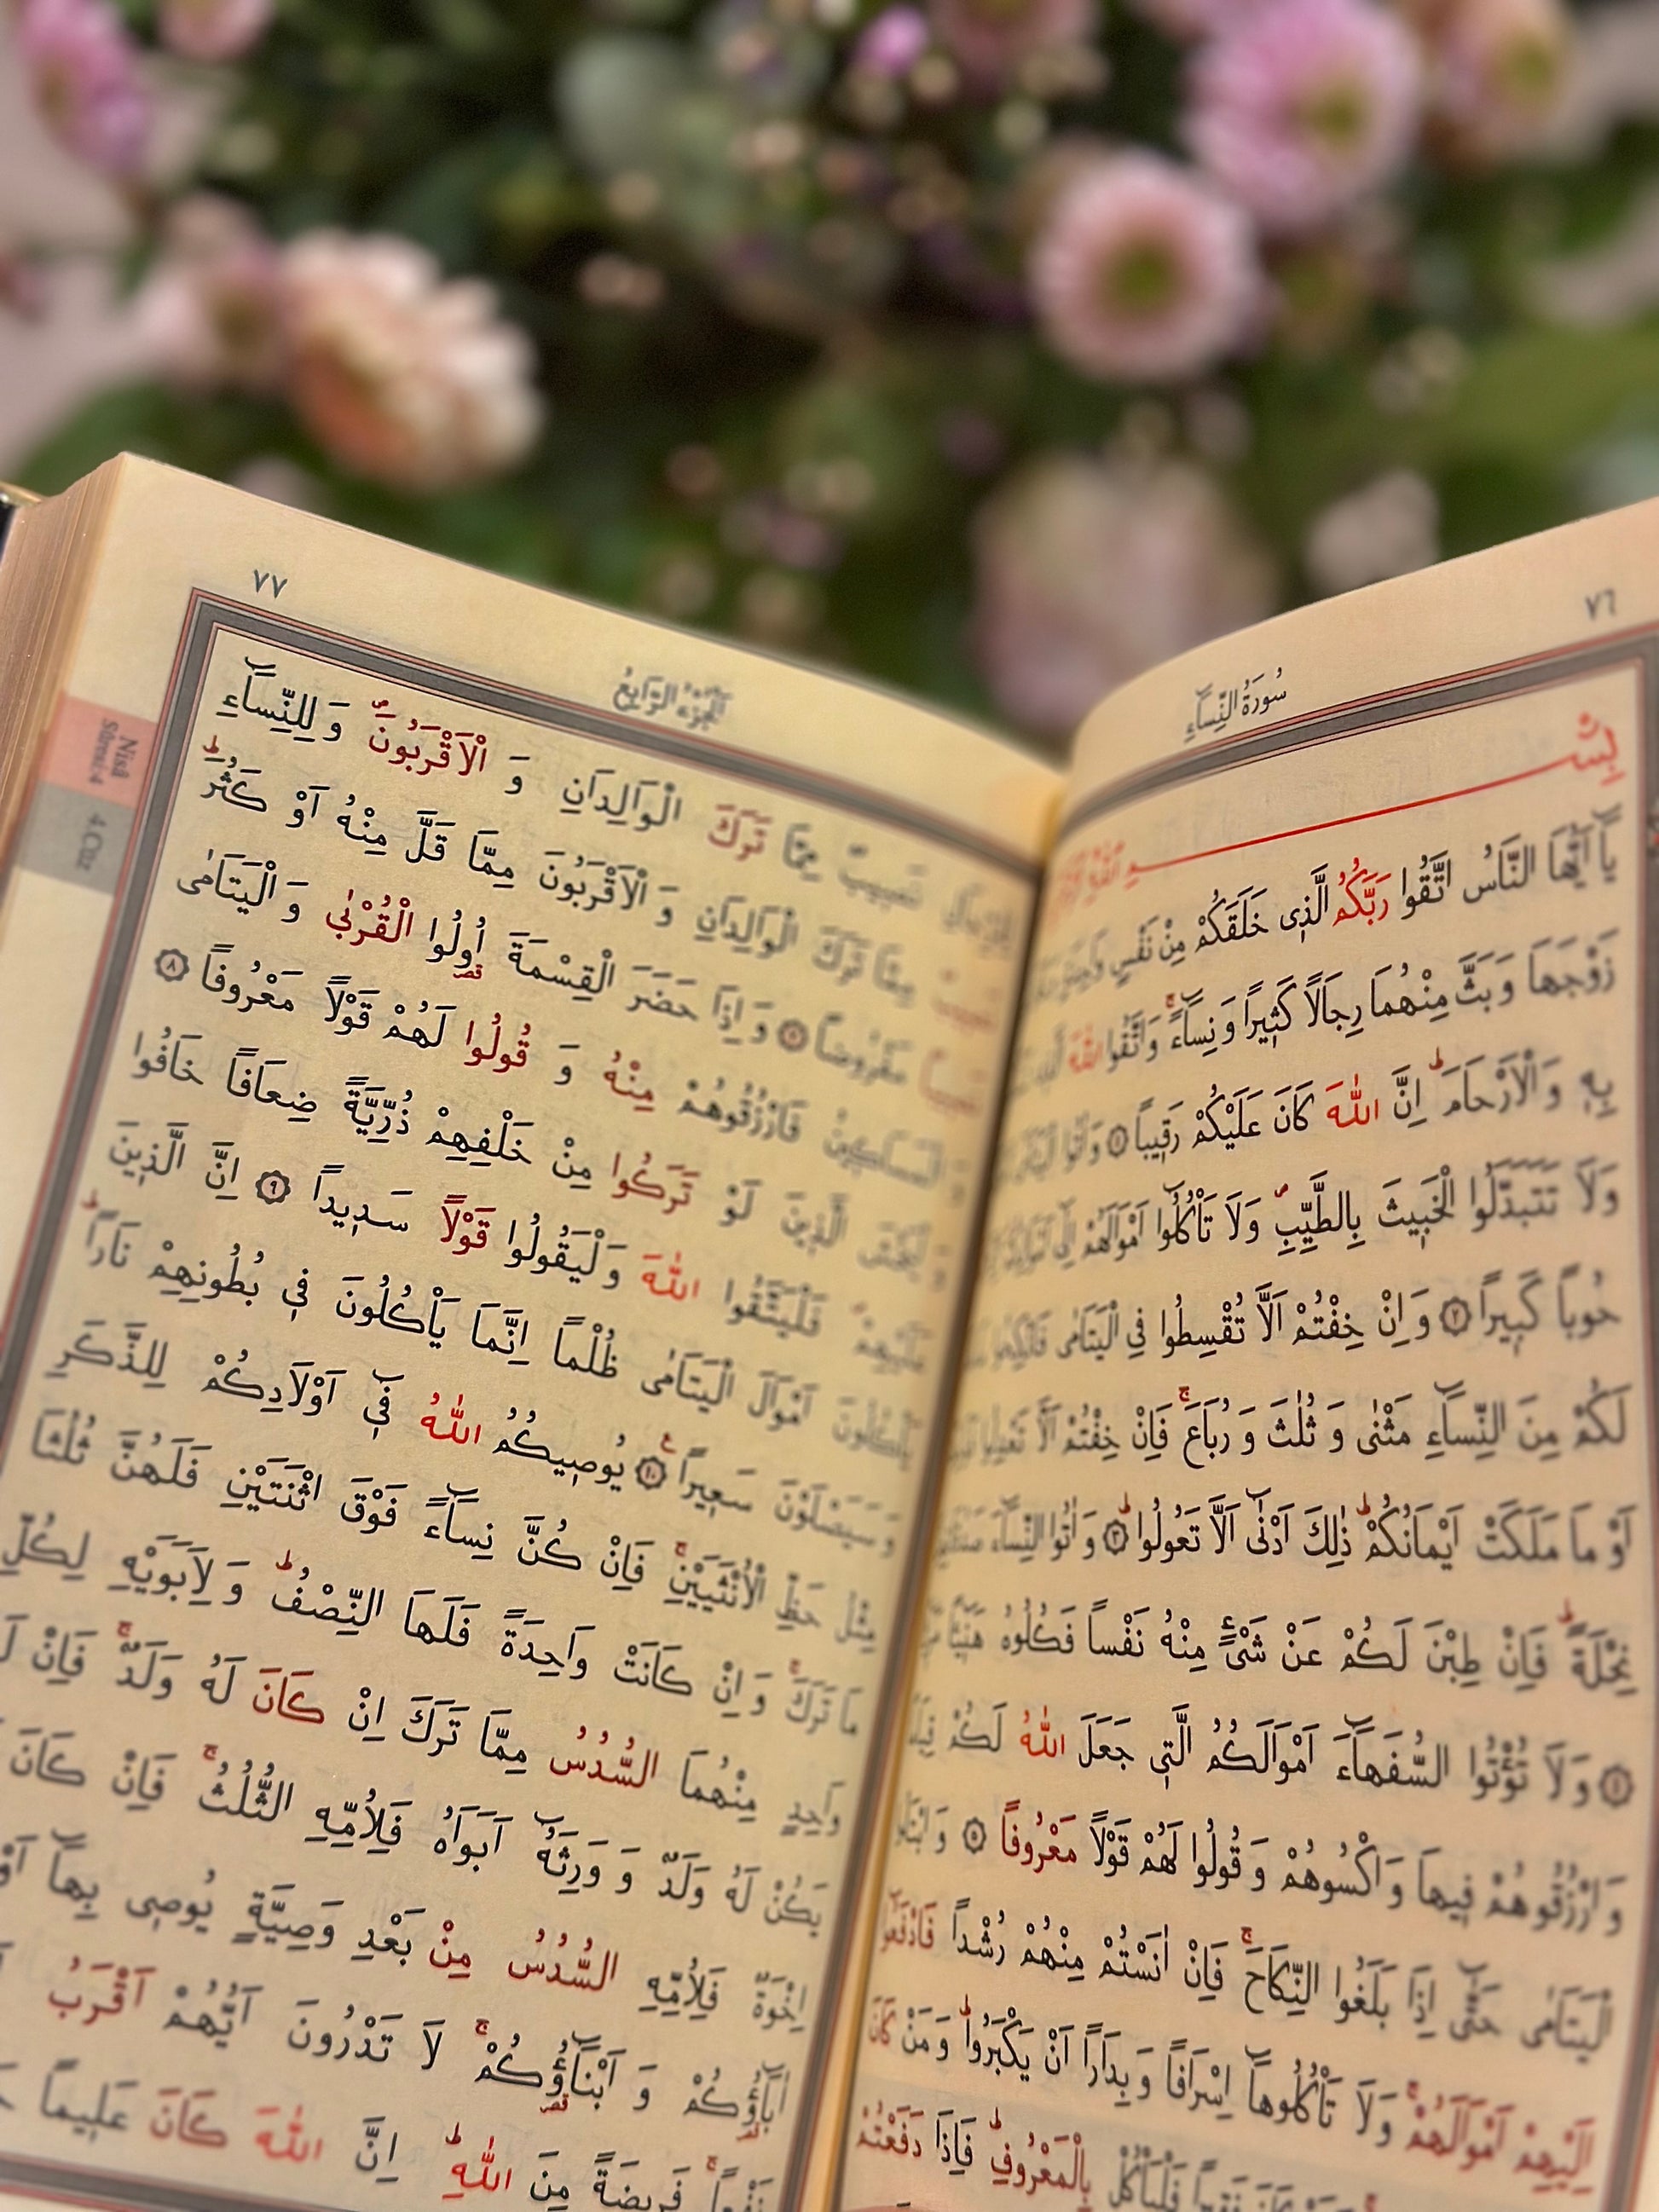 ٧٦
سُورَةُ النِّسَاءِ
بِسْمِ
يَٓا اَيُّهَا النَّاسُ اتَّقُوا رَبَّكُمُ الَّذٖى خَلَقَكُمْ مِنْ نَفْسٍ وَاحِدَةٍ
زَوْجَهَا وَبَثَّ مِنْهُمَا رِجَالًا كَثٖيرًا وَنِسَٓاءًۚ وَاتَّقُوا اللّٰهَ الَّذٖى
بِهٖ وَالْاَرْحَامَۜ اِنَّ اللّٰهَ كَانَ عَلَيْكُمْ رَقٖيبًا ﴿١﴾ وَاٰتُوا الْيَتَامٰٓى
وَلَا تَتَبَدَّلُوا الْخَبٖيثَ بِالطَّيِّبِۖ وَلَا تَأْكُلُٓوا اَمْوَالَهُمْ اِلٰٓى اَمْوَالِكُمْ
حُوبًا كَبٖيرًا ﴿٢﴾ وَاِنْ خِفْتُمْ اَلَّا تُقْسِطُوا فِى الْيَتَامٰى فَانْكِحُوا
لَكُمْ مِنَ النِّسَٓاءِ مَثْنٰى وَ ثُلٰثَ وَ رُبَاعَۚ فَاِنْ خِفْتُمْ اَلَّا تَعْدِلُوا
اَوْ مَا مَلَكَتْ اَيْمَانُكُمْۜ ذٰلِكَ اَدْنٰٓى اَلَّا تَعُولُواۜ ﴿٣﴾ وَ اٰتُوا النِّسَٓاءَ
نِحْلَةًۜ فَاِنْ طِبْنَ لَكُمْ عَنْ شَیْءٍ مِنْهُ نَفْسًا فَكُلُوهُ هَنٖٓيـًٔا
﴿٤﴾ وَ لَا تُؤْتُوا السُّفَهَٓاءَ اَمْوَالَكُمُ الَّتٖى جَعَلَ اللّٰهُ لَكُمْ
وَ ارْزُقُوهُمْ فٖيهَا وَ اكْسُوهُمْ وَ قُولُوا لَهُمْ قَوْلًا مَعْرُوفًا ﴿٥﴾ وَ ابْتَلُوا
الْيَتَامٰى حَتّٰٓى اِذَا بَلَغُوا النِّكَاحَۚ فَاِنْ اٰنَسْتُمْ مِنْهُمْ رُشْدًا فَادْفَعُٓوا
اِلَيْهِمْ اَمْوَالَهُمْۚ وَلَا تَأْكُلُوهَٓا اِسْرَافًا وَ بِدَارًا اَنْ يَكْبَرُواۜ وَ مَنْ كَانَ
فَلْيَأْكُلْ بِالْمَعْرُوفِۜ فَاِذَا دَفَعْتُمْ
٧٧
اَلْجُزْءُ الرَّابِعُ
نَصٖيبٌ مِمَّا تَرَكَ الْوَالِدَانِ وَ الْاَقْرَبُونَۖ وَ لِلنِّسَٓاءِ
مِمَّا تَرَكَ الْوَالِدَانِ وَ الْاَقْرَبُونَ مِمَّا قَلَّ مِنْهُ اَوْ كَثُرَۜ
مَفْرُوضًا ﴿٧﴾ وَ اِذَا حَضَرَ الْقِسْمَةَ اُو۬لُوا الْقُرْبٰى وَ الْيَتَامٰى
فَارْزُقُوهُمْ مِنْهُ وَ قُولُوا لَهُمْ قَوْلًا مَعْرُوفًا ﴿٨﴾
الَّذٖينَ لَوْ تَرَكُوا مِنْ خَلْفِهِمْ ذُرِّيَّةً ضِعَافًا خَافُوا
عَلَيْهِمْۖ فَلْيَتَّقُوا اللّٰهَ وَلْيَقُولُوا قَوْلًا سَدٖيدًا ﴿٩﴾ اِنَّ الَّذٖينَ
يَأْكُلُونَ اَمْوَالَ الْيَتَامٰى ظُلْمًا اِنَّمَا يَأْكُلُونَ فٖى بُطُونِهِمْ نَارًاۜ
وَ سَيَصْلَوْنَ سَعٖيرًا ﴿١٠﴾ يُوصٖيكُمُ اللّٰهُ فٖٓى اَوْلَادِكُمْ لِلذَّكَرِ
مِثْلُ حَظِّ الْاُنْثَيَيْنِۚ فَاِنْ كُنَّ نِسَٓاءً فَوْقَ اثْنَتَيْنِ فَلَهُنَّ ثُلُثَا
مَا تَرَكَۚ وَ اِنْ كَانَتْ وَاحِدَةً فَلَهَا النِّصْفُۜ وَ لِاَبَوَيْهِ لِكُلِّ
وَاحِدٍ مِنْهُمَا السُّدُسُ مِمَّا تَرَكَ اِنْ كَانَ لَهُ وَلَدٌۚ فَاِنْ
يَكُنْ لَهُ وَلَدٌ وَ وَرِثَهُٓ اَبَوَاهُ فَلِاُمِّهِ الثُّلُثُۚ فَاِنْ كَانَ
اِخْوَةٌ فَلِاُمِّهِ السُّدُسُ مِنْ بَعْدِ وَصِيَّةٍ يُوصٖى بِهَٓا اَوْ
اٰبَٓاؤُ۬كُمْ وَ اَبْنَٓاؤُ۬كُمْۚ لَا تَدْرُونَ اَيُّهُمْ اَقْرَبُ
نَفْعًاۚ فَرٖيضَةً مِنَ اللّٰهِۜ اِنَّ اللّٰهَ كَانَ عَلٖيمًا
Nisâ
Sûresi:4
4 Cüz